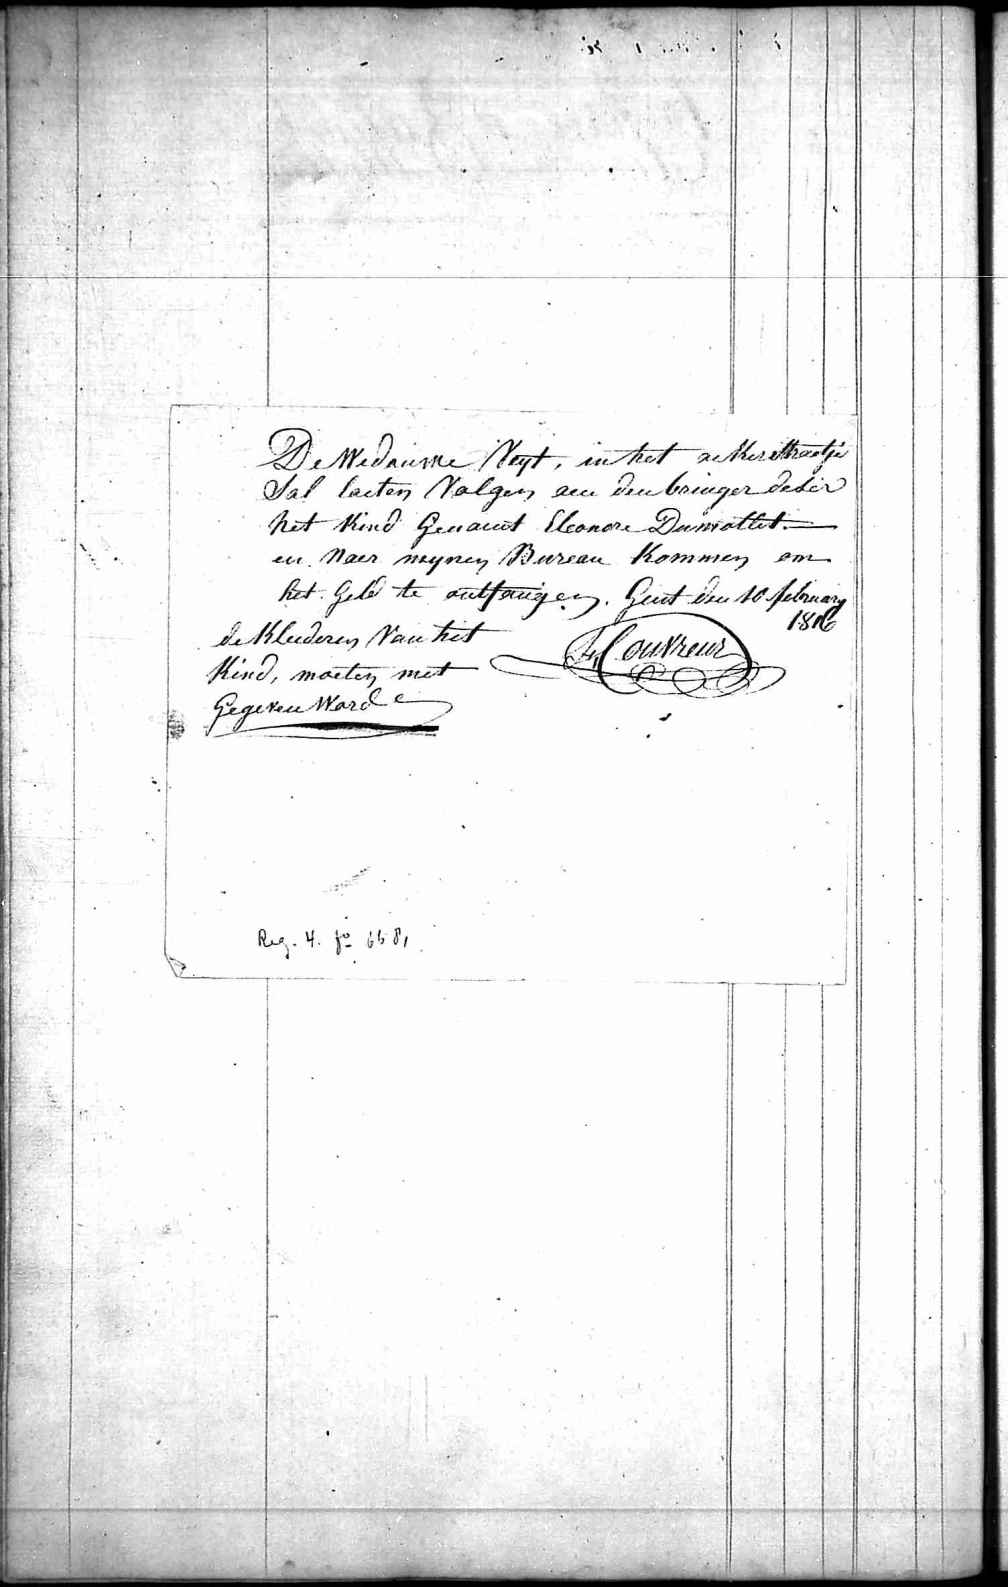 De Weduwe Veyt, in het ackerstraetje
Sal laeten Volgen aen den bringer deser
het Kind Genaemt Eleonore Dumollet.
en Naer mynen Bureau Kommen om
het Geld te ontfangen. Gent den 10 february
1816
de Kleederen Van het
Kind, moeten met
Gegeven Worde
F. Couvreur
Reg. 4. fo